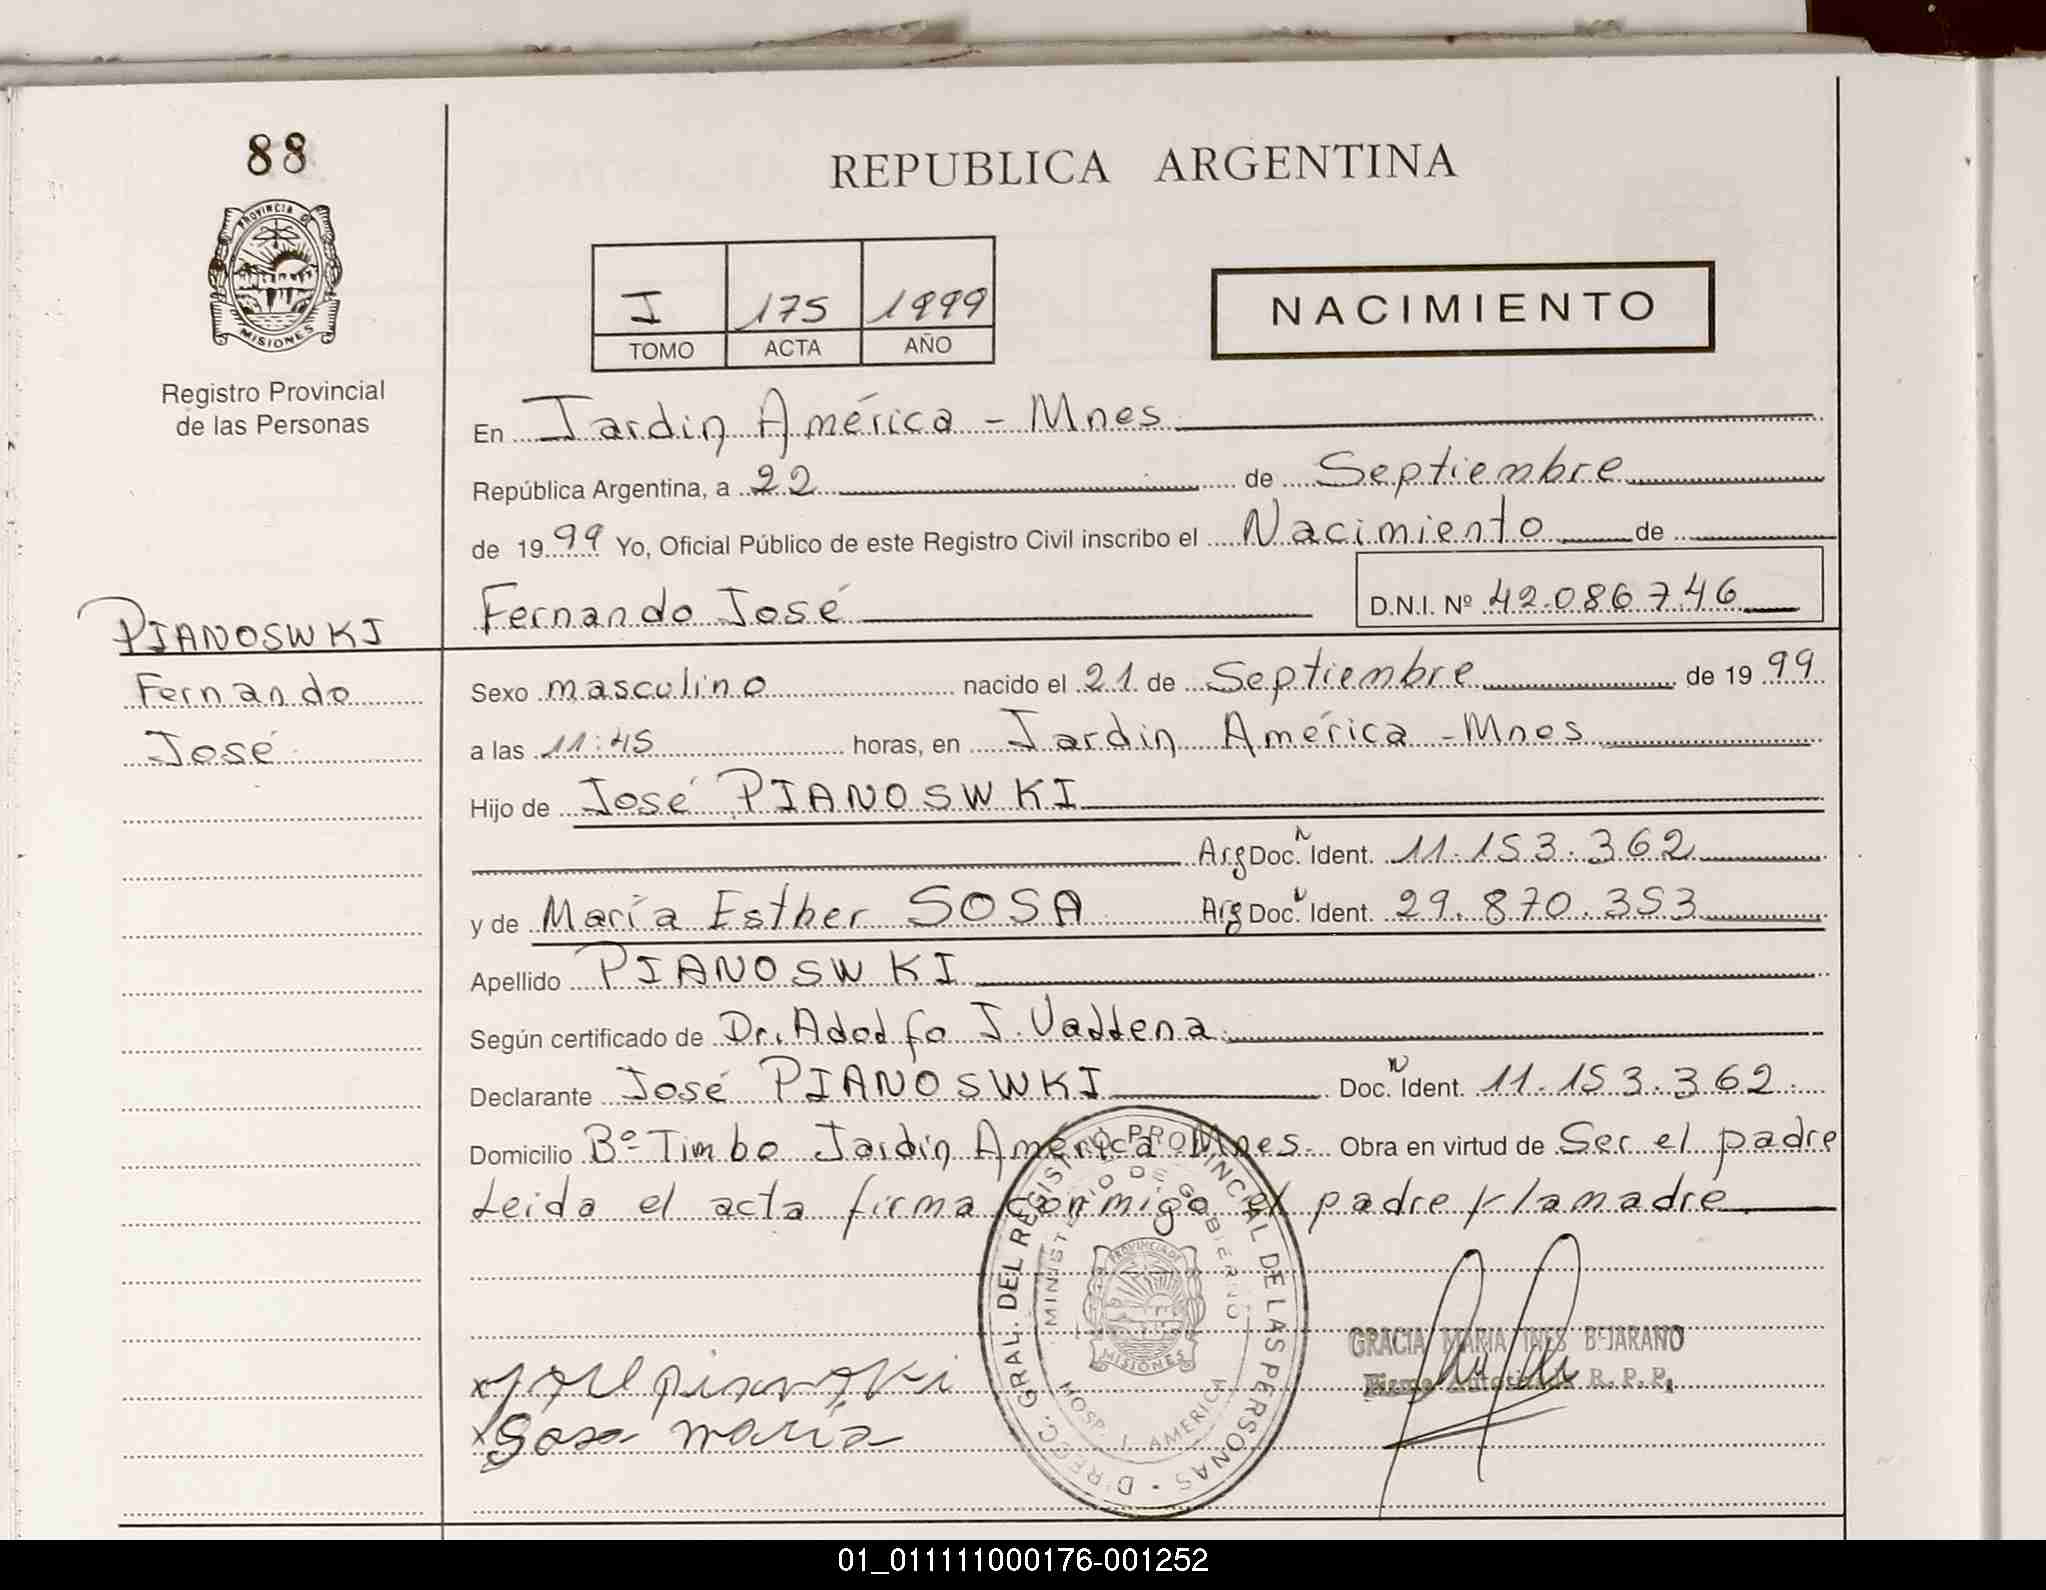 88
REPUBLICA ARGENTINA
PROVINCIA DE
MISIONES
Registro Provincial
de las Personas
I 175 1999
TOMO ACTA AÑO
NACIMIENTO
En Jardin América - Mnes
República Argentina, a 22 de Septiembre
de 1999 Yo, Oficial Público de este Registro Civil inscribo el Nacimiento de
Fernando José D.N.I. Nº 42.086.746
PIANOSWKI
Fernando
José
Sexo masculino nacido el 21 de Septiembre de 1999
a las 11:45 horas, en Jardin América - Mnes
Hijo de José PIANOSWKI
Arg Doc. N Ident. 11.153.362
y de María Esther SOSA Arg Doc. N Ident. 29.870.353
Apellido PIANOSWKI
Según certificado de Dr. Adolfo J. Vallena
Declarante José PIANOSWKI Doc. N Ident. 11.153.362
Domicilio Bº Timbo Jardin América Mnes. Obra en virtud de Ser el padre
Leida el acta firma conmigo el padre y la madre
DIRECC. GRAL. DEL REGISTRO PROVINCIAL DE LAS PERSONAS
MINISTERIO DE GOBIERNO
PROVINCIA DE
MISIONES
HOSP. J. AMERICA
GRACIA MARIA INES BEJARANO
Firma Autorizada R.P.P.
x José pianoski
x Sosa maria
01_011111000176-001252